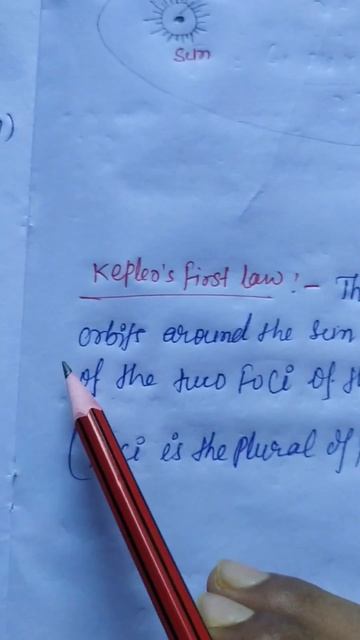 Sun
Kepleo's first law :- Th
orbits around the sun
of the two foci of th
ci is the plural of